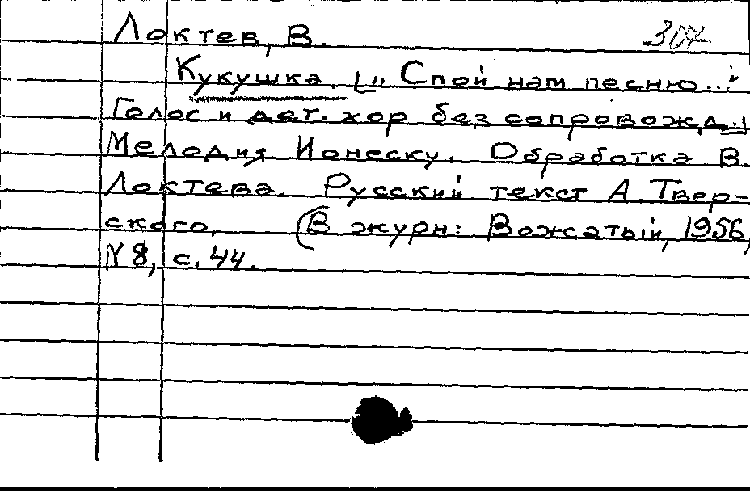 Локтев, В.
Кукушка. [„Спой нам песню..."
Голос и дет. хор без сопровожд.]
Мелодия Ионеску. Обработка В.
Локтева. Русский текст А. Твер-
ского. (В журн: Вожатый, 1956,
№ 8, с. 44.